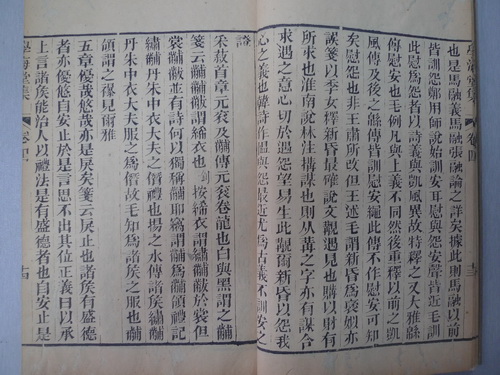 學海堂集
也是馬融義馬融張融論之詳矣據此則馬融以前
皆訓怨鄭用師說始訓安耳慰與怨安聲皆近毛訓
此慰爲怨者以詩義與凱風異故特釋之又大雅緜
傳慰安也毛例凡與上義不同然後重釋以前之凱
風傳及後之緜傳皆訓慰安繩此傳不作慰安可知
矣慰怨也非王肅所改但王述毛謂新昏爲襃姒亦
誤箋以季女釋新昏最確說文覯遇見也購以財有
所求也淮南說林注搆謀也則从冓之字亦有謀合
求遇之意心切於遇怨望易生此覯爾新昏以怨我
心之義也韓詩作慍與怨最近尤爲古義不訓安之
證
采菽首章元袞及黼傳元袞卷龍也白與黑謂之黼
箋云黼黻謂絺衣也按絺衣謂繡黼黻於裳但
裳黼黻並有詩何以獨稱黼耶竊謂黼爲黼領禮記
繡黼丹朱中衣大夫之僭禮也揚之水傳諸侯繡黼
丹朱中衣大夫服之爲僭故毛知爲諸侯之服也黼
領謂之襮見爾雅
五章優哉悠哉亦是戾矣箋云戾止也諸侯有盛德
者亦優悠自安止於是言思不出其位正義曰以承
上言諸侯能治人以禮法是有盛德者也自安止是
學海堂集 卷四 十四